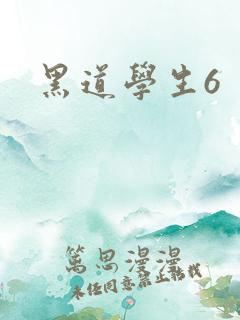 黑道學生6
篤思漫漫
未經同意禁止轉載